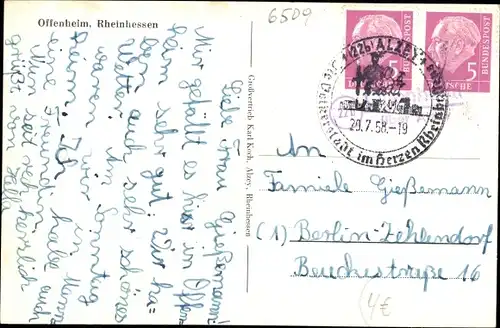 Offenheim, Rheinhessen
6509
Liebe Frau Gießemann!
Mir gefällt es hier in Offen-
heim sehr gut. Wir ha-
ben auch sehr schönes
Wetter. Am Sonntag
waren wir in
heim. Ich habe auch
eine Freundin.
Nun seit recht herzlich
grüßt von
Großvertrieb Karl Koch, Alzey, Rheinhessen
DEUTSCHE BUNDESPOST
5
DEUTSCHE BUNDESPOST
5
(22b) ALZEY
im Herzen Rheinhessens
20.7.58.-19
An
Familie Gießemann
(1) Berlin-Zehlendorf
Beuckestraße 16
4€